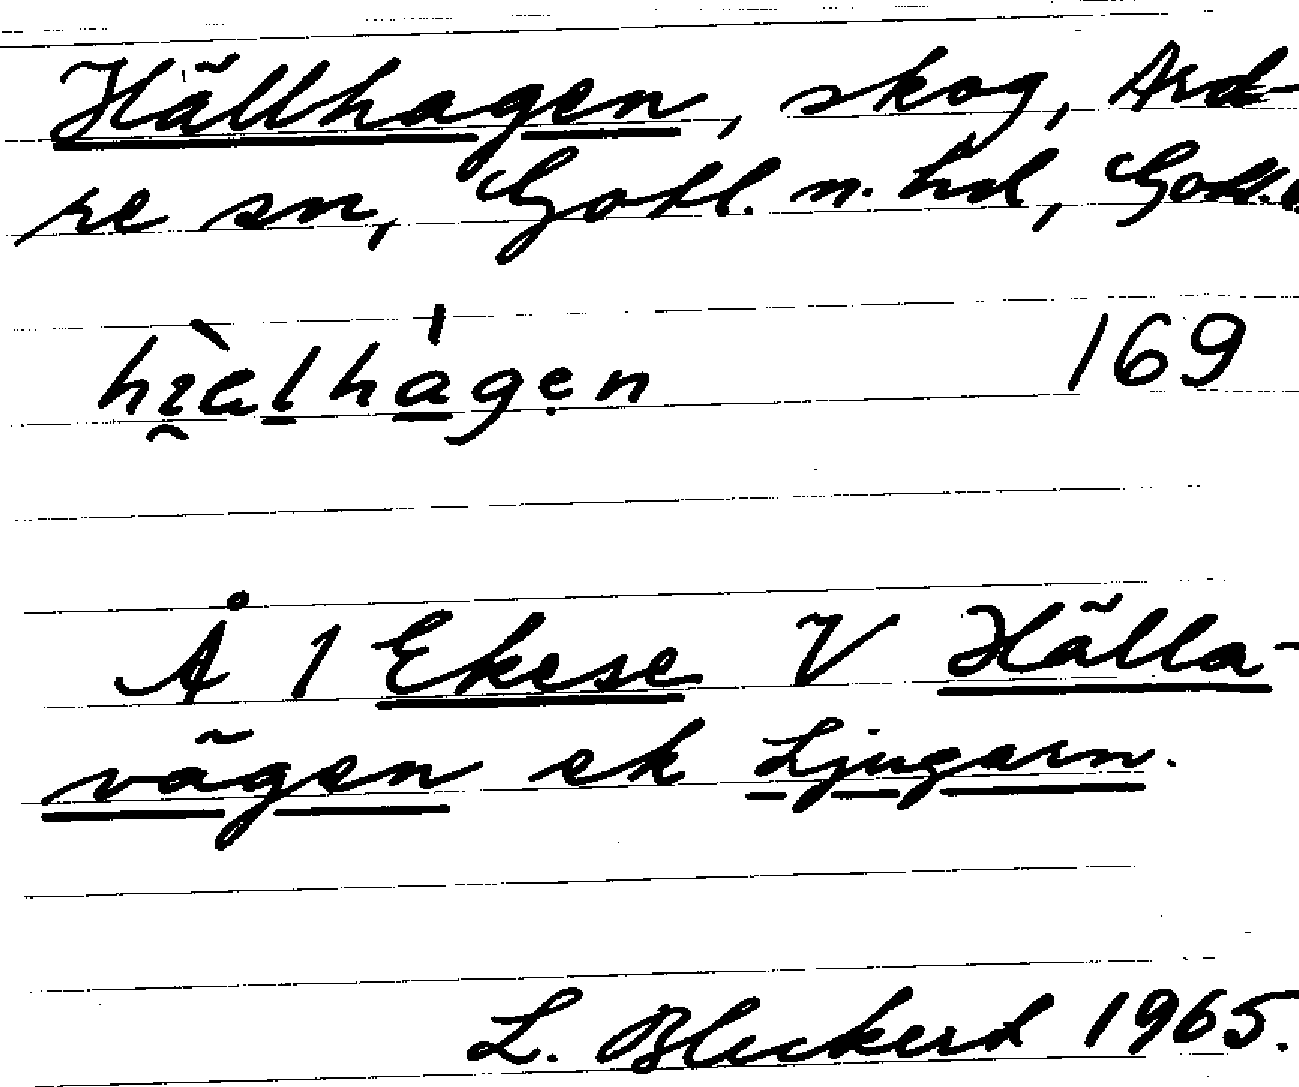 Hällhagen, skog, Ard-
re sn, Gotl. n. hd, Gotl.
hìalhágen 169
Å 1 Ekese V Hälla-
vägen ek Ljugarn.
L. Bleckerd 1965.